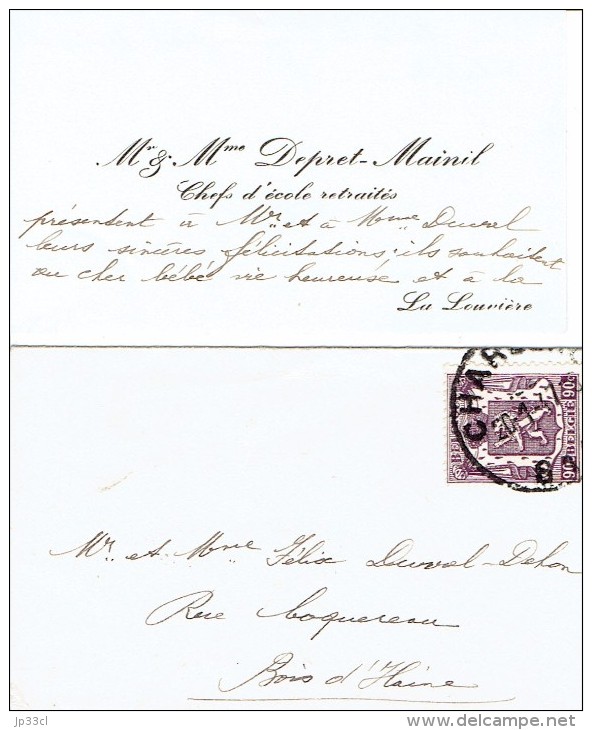 Mr & Mme Depret-Mainil
Chefs d'école retraités
présentent à Mr. et à Mme Duval
leurs sincères félicitations; ils souhaitent
au cher bébé vie heureuse et à la
La Louvière
CHAR
20.-1.-3
90c BELGIE
Mr. et Mme Félix Duval-Dehon
Rue Coquereau
Bois d'Haine
jp33cl
www.delcampe.net